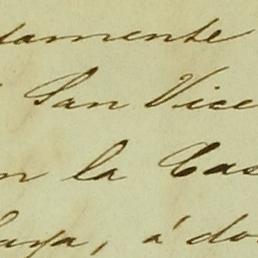 damente
San Vice
en la Cas
laya, á do